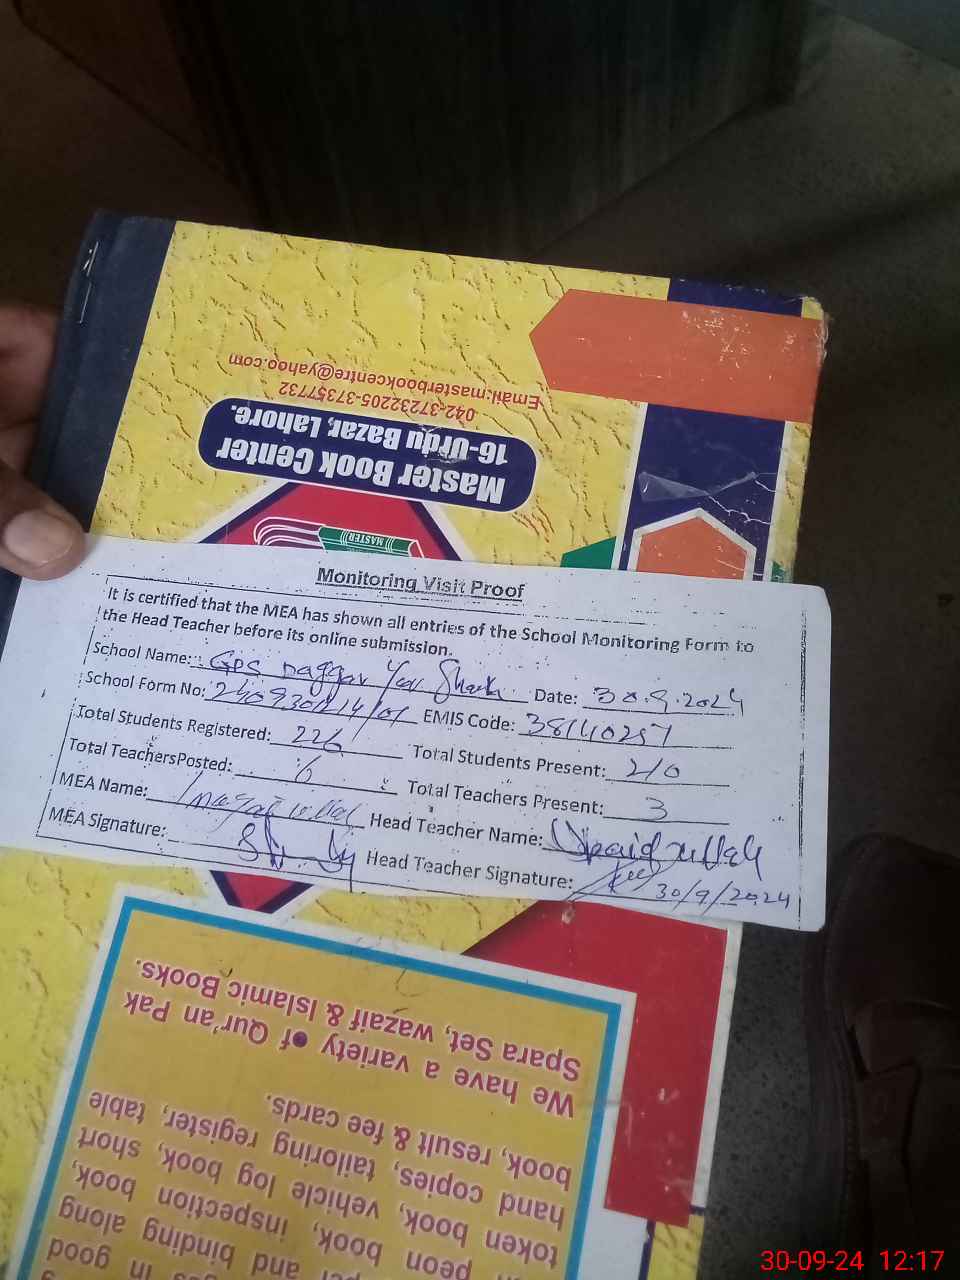 Email:masterbookcentre@yahoo.com
042-37232205-37357732
16-Urdu Bazar, Lahore.
Master Book Center
MASTER
Monitoring Visit Proof
It is certified that the MEA has shown all entries of the School Monitoring Form to
the Head Teacher before its online submission.
School Name: GPS Daggar Date: 30.9.2024
School Form No: EMIS Code: 38140257
Total Students Registered: 226 Total Students Present: 210
Total TeachersPosted: 6 Total Teachers Present: 3
MEA Name: Head Teacher Name: Ubaidullah
MEA Signature: Head Teacher Signature: 30/9/2024
We have a variety of Qur'an Pak
Spara Set, wazaif & Islamic Books.
book, result & fee cards.
hand copies, tailoring register, table
token book, vehicle log book, short
peon book, inspection book,
and binding along
in good
30-09-24 12:17